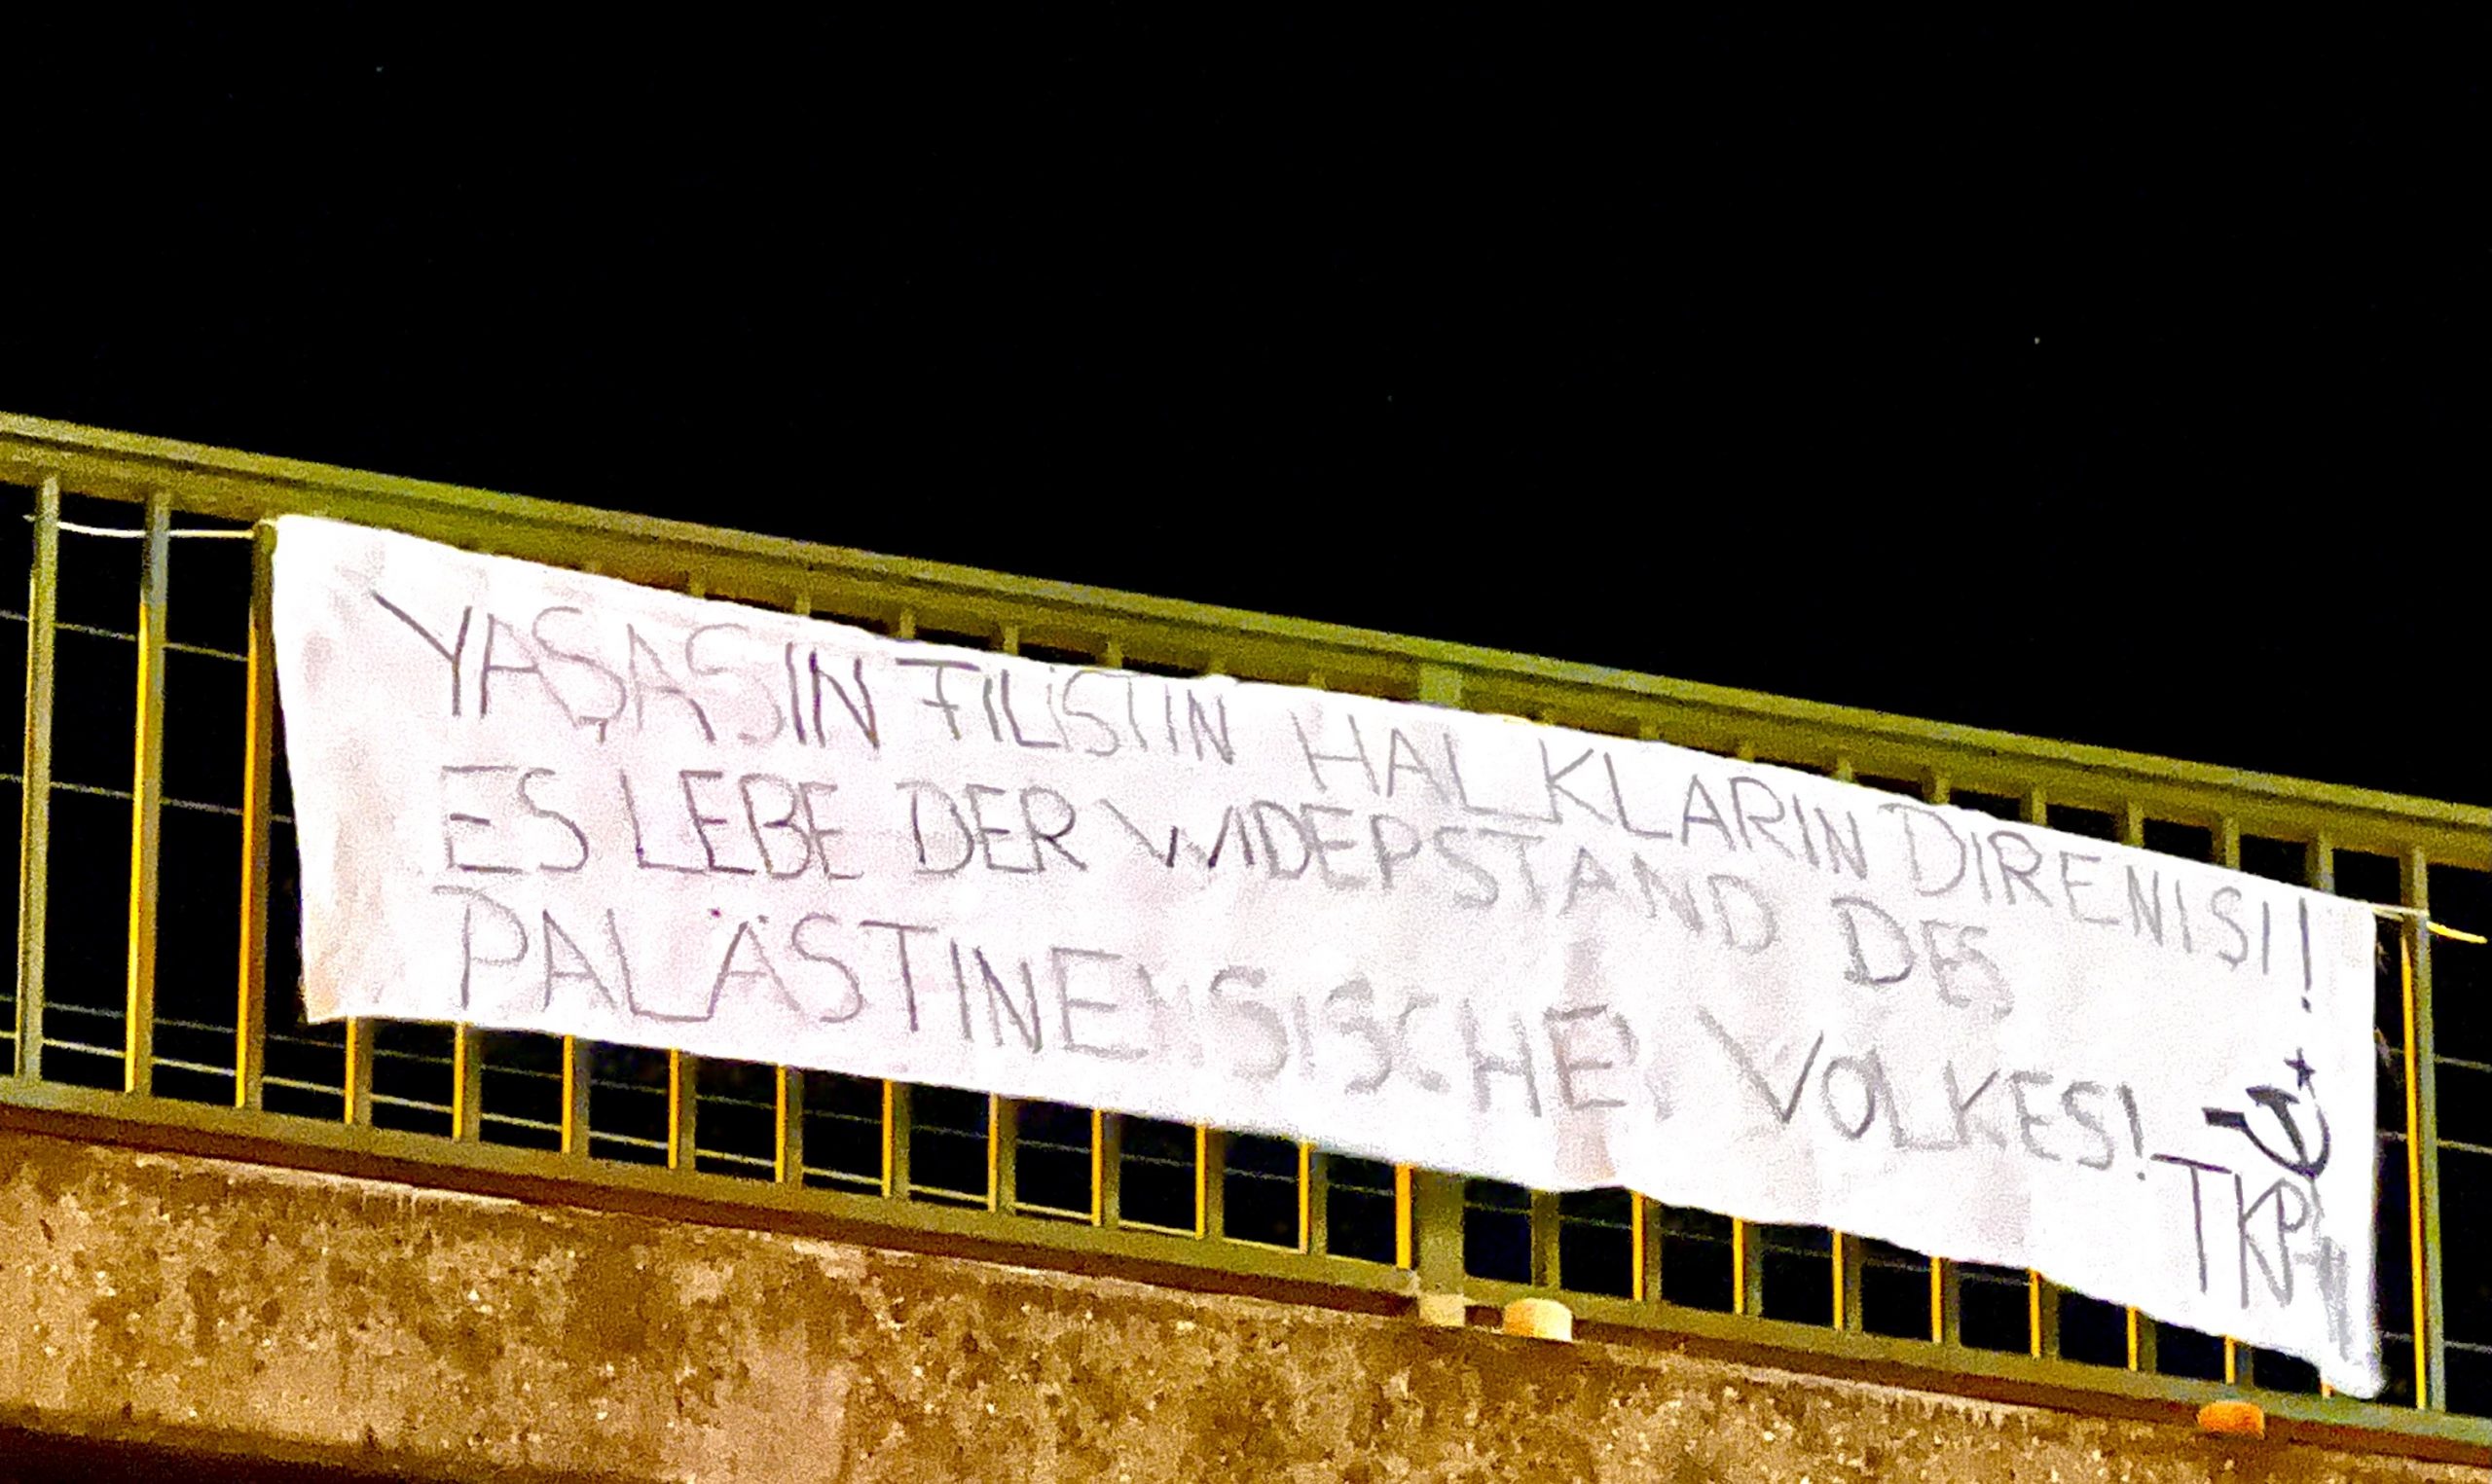 YAŞASIN FILiSTIN HALKLARIN DIRENISI!
ES LEBE DER WIDERSTAND DES
PALÄSTINENSISCHEN VOLKES!
TKP